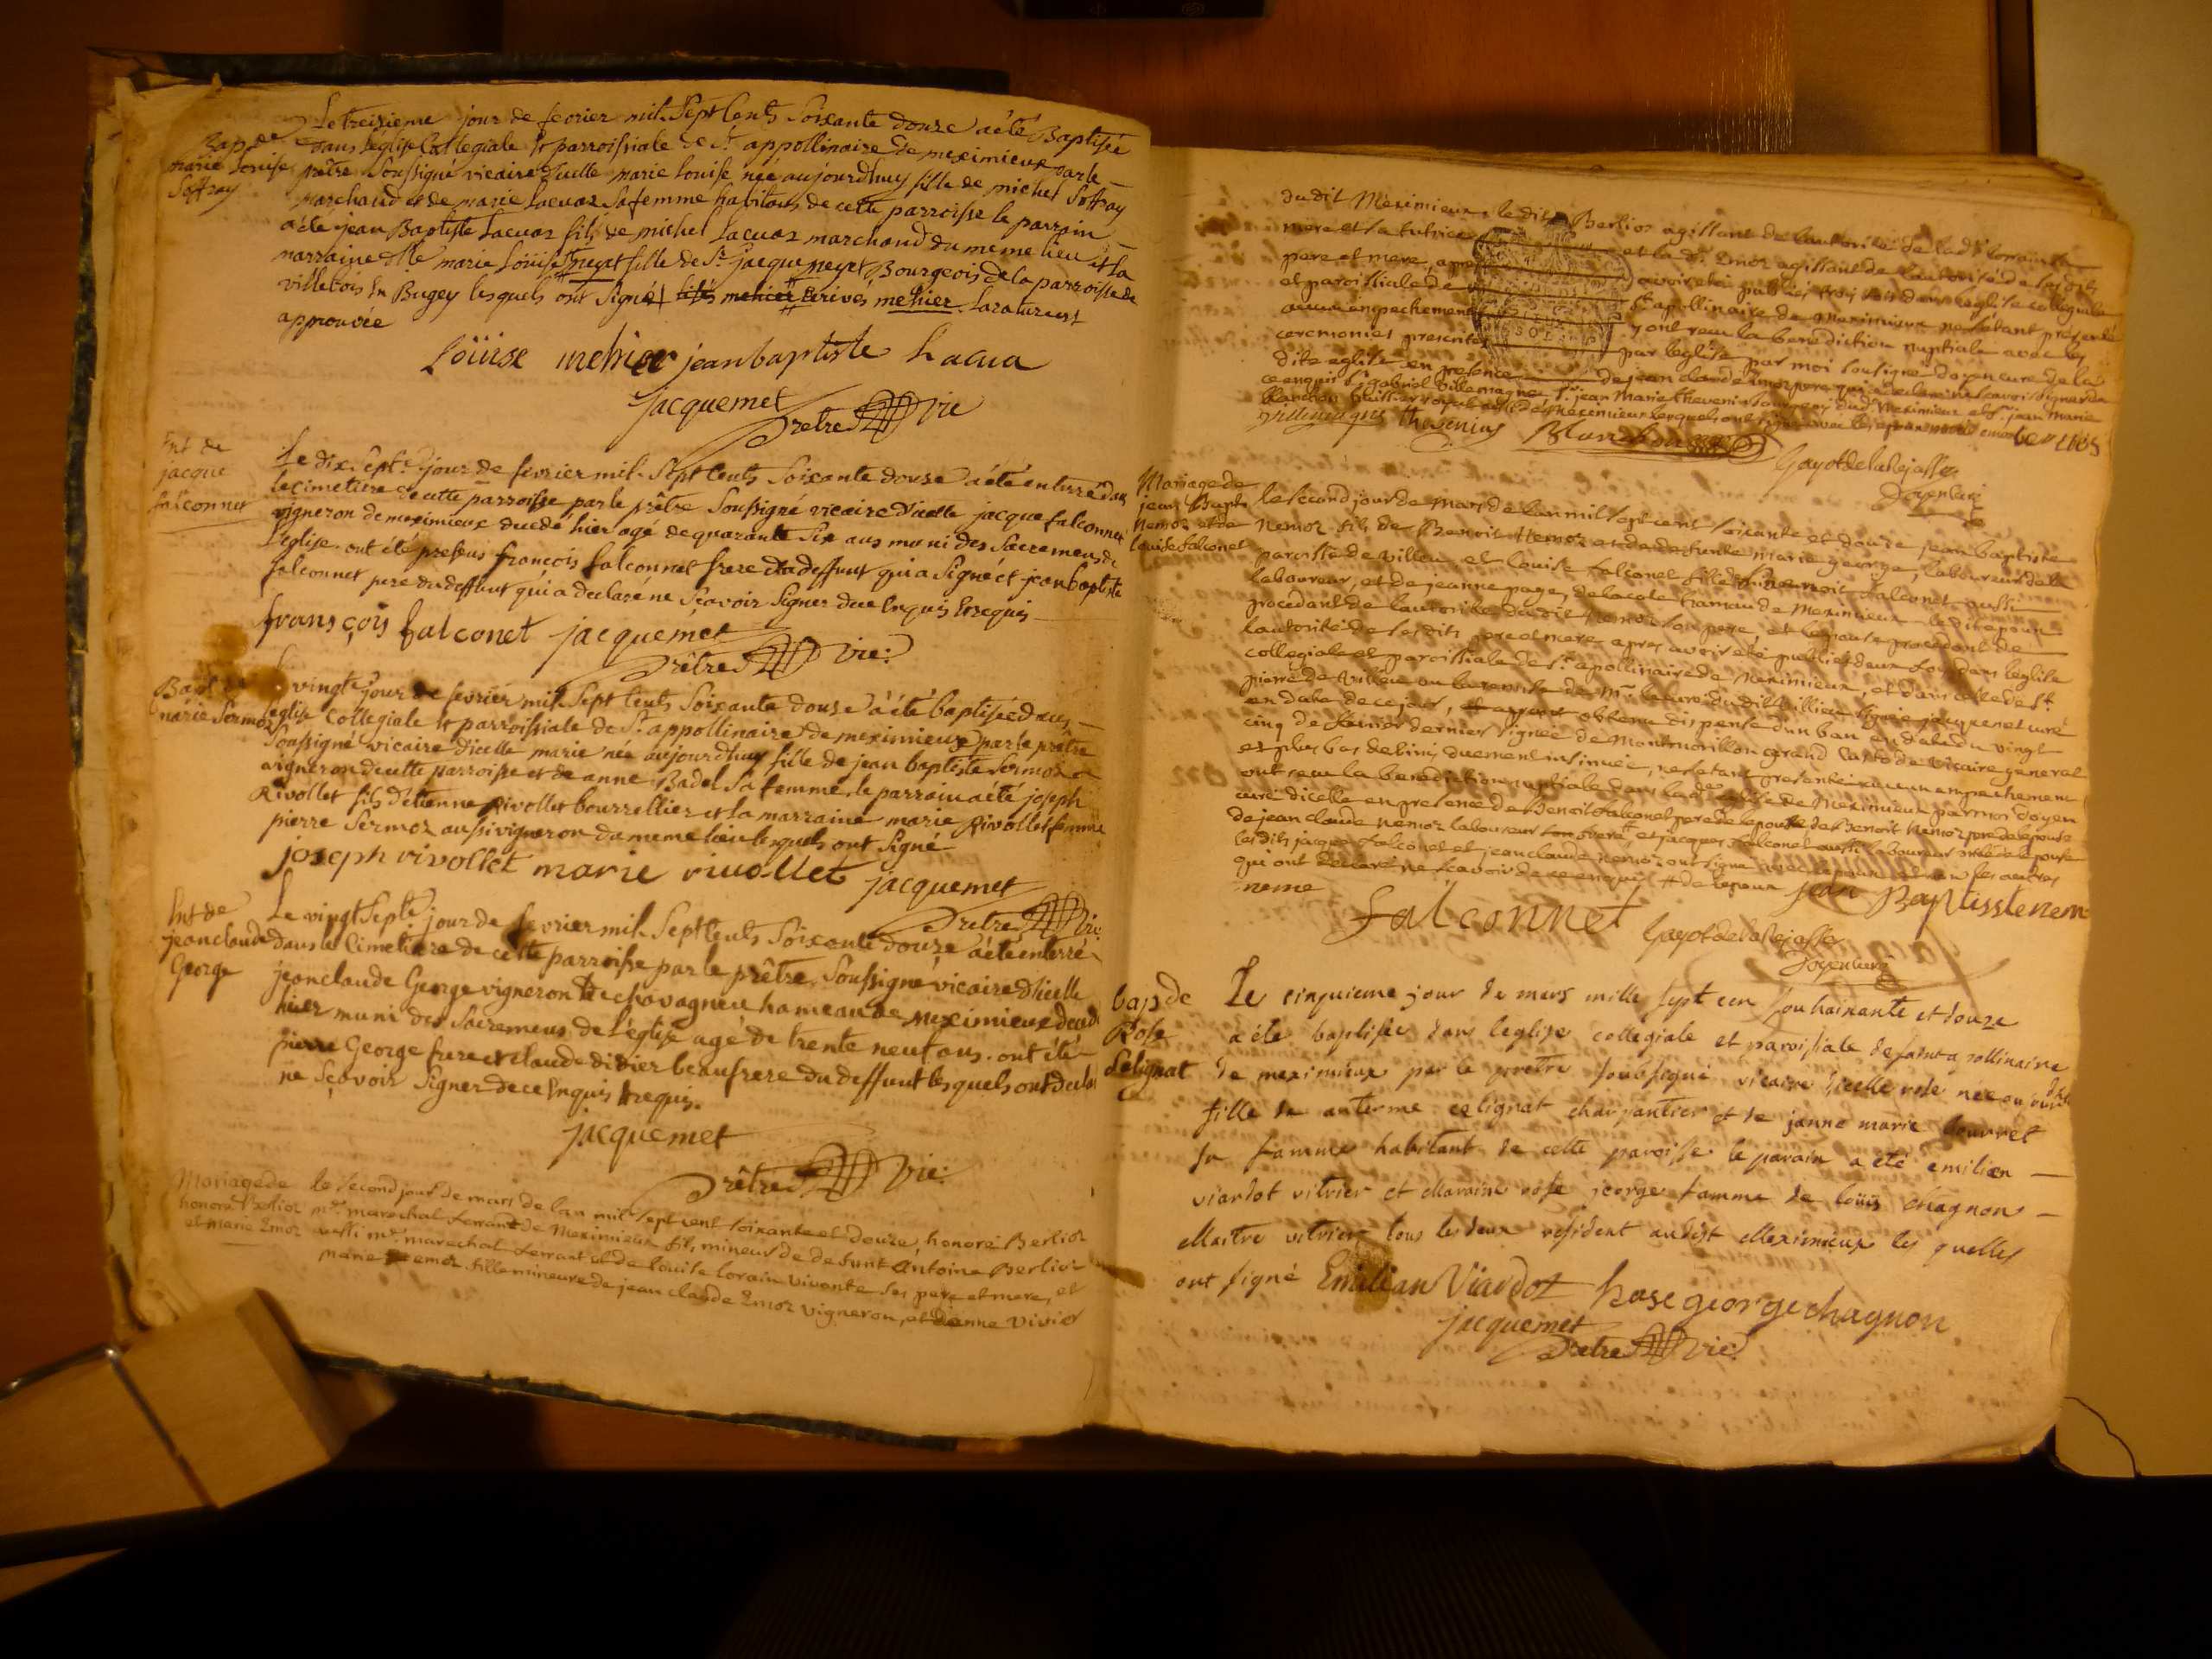 Bap de
marie Louise
Soffray
Le treizieme jour de fevrier mil Sept Cents Soixante douze a été Baptisée
dans l'église Collegiale & parroissiale de St. appollinaire de meximieux par le
prêtre Soussigné vicaire d'icelle marie Louise née aujourdhuy fille de michel Soffray
marchand et de marie Lacuaz Sa femme habitans de cette parroisse le parrain
a été jean Baptiste Lacuaz fils de michel Lacuaz marchand du meme lieu et la
marraine marie Loüise fille de Sr. jacque Bourgeois de la parroisse de
villebois en Bugey lesquels ont Signé mehier la rature est
approuvée
Loüise mehier jean baptiste Lacua
jacquemet
Prêtre vic
Ent de
jacque
falconnet
Le dix Sept jour de fevrier mil Sept Cents Soixante douze a été enterré dans
le cimetiere de cette parroisse par le prêtre Soussigné vicaire d'icelle jacque falconnet
vigneron de meximieux decedé hier agé de quarante Six ans muni des Sacremens de
l'église. ont été presens françois falconnet frere du deffunt qui a Signé et jean baptiste
falconnet pere du deffunt qui a declaré ne Sçavoir Signer de ce Enquis & requis
françois falconet jacquemet
Prêtre vic:
Bapt de
marie Sermoz
vingt jour de fevrier mil Sept Cents Soixante douze a été baptisée dans
l'eglise Collegiale & parroissiale de St. appollinaire de meximieux par le prêtre
Soussigné vicaire d'icelle marie née aujourdhuy fille de jean baptiste Sermoz
vigneron de cette parroisse et de anne Badel Sa femme. le parrain a été joseph
Rivollet fils d'etienne Rivollet bourrellier et la marraine marie Rivollet femme
pierre Sermoz aussi vigneron du meme lieu lesquels ont Signé
joseph rivollet marie rivollet jacquemet
Prêtre vic:
Ent de
jean claude
George
Le vingt Septe jour de fevrier mil Sept Cents Soixante douze a été enterré
dans le Cimetiere de cette parroisse par le prêtre Soussigné vicaire d'icelle
jean claude George vigneron de chavagneu hameau de Meximieux decedé
hier muni des Sacremens de l'église agé de trente neuf ans. ont été
pierre George frere et claude didier beaufrere du deffunt lesquels ont declaré
ne Sçavoir Signer de ce Enquis & requis.
jacquemet
Prêtre vic:
Mariage de
honoré Berlioz
et marie Emoz
le second jour de mars de l'an mil sept cent soixante et douze, honoré Berlioz
me. marechal ferrant de Meximieux fils mineur de defunt Antoine Berlioz
aussi me. marechal ferrant et de louise lorain vivante ses pere et mere, et
marie emoz fille mineure de jean claude Emoz vigneron, et d'anne Vivier
du dit Meximieux le dit Berlioz agissant de l'autorité de lad. lorain sa
mere et sa tutrice et la d. Emoz agissant de l'autorité de ses dits
pere et mere, apres avoir été publiés trois fois dans l'eglise collegiale
et paroissiale de St. apollinaire de Meximieux ne s'etant presenté
aucun empechement, y ont recu la benediction nuptiale avec les
ceremonies prescrites par l'eglise par moi soussigné doyen curé de la
dite eglise, en presence de jean claude Emoz pere qui a declaré ne scavoir signer de
ce enquis Sr. gabriel Villemagne, Sr. jean Marie Thevenin dud. Meximieux et Sr. jean Marie
Blanchon huissier royal
Villemagne Thevenins Blanchon Berlios
Gayot de la Rejasse
Doyen curé
Mariage de
jean Bapte
Nemoz et de
Louise falconet
le second jour de Mars de l'an mil sept cent soixante et douze jean baptiste
Nemoz fils de Benoit Nemoz et de defunte Marie george, laboureurs de la
paroisse de Villeu, et louise falconet fille de Benoit falconet aussi
laboureur, et de jeanne page, de la cote hamau de Meximieux le dit epoux
procedant de l'autorité du dit Nemoz son pere, et l'epouse procedant de
l'autorité de ses dits pere et mere apres avoir eté publiés deux fois dans l'eglise
collegiale et paroissiale de St. apollinaire de Meximieux, et dans celle de St.
pierre de Villieu
en date de ce jour, obtenu dispense d'un ban en date du vingt
cinq de fevrier dernier signée de Montmorillon grand Vicaire general
et plus bas duement insinuée, ne s'etant presenté aucun empechement
ont recu la benediction nuptiale dans la d. eglise de Meximieux par moi doyen
curé d'icelle en presence de Benoit falconet pere de l'epouse de Benoit Nemoz pere de l'epoux
de jean claude Nemoz laboureur et jacques falconet aussi laboureur de l'epouse
les dits jacques falconet et jean claude Nemoz ont signé avec l'epoux les autres
qui ont declaré ne scavoir de ce enquis de l'epoux Jean Baptisste nem
neme
falconnet Gayot de la Rejasse
Doyen curé
bap de
Rose
Selignat
Le cinquieme jour de mars mille sept cen souhaixante et douze
a été baptisée dans l'eglise collegiale et paroissiale de saint apollinaire
de meximieux par le prretre soubsigné vicaire d'icelle rose née aujourd
fille de anterme celignat charpantier et de janne marie bouvret
sa famme habitant de cette paroisse le parain a eté emilien
viardot vitrier et Maraine rose jeorge famme de loüis chagnon
Maitre vitrier tous les deux resident audist Meximieux les quelles
ont signé Emilian Viardot Rose george chagnon
jacquemet
Prêtre vic: